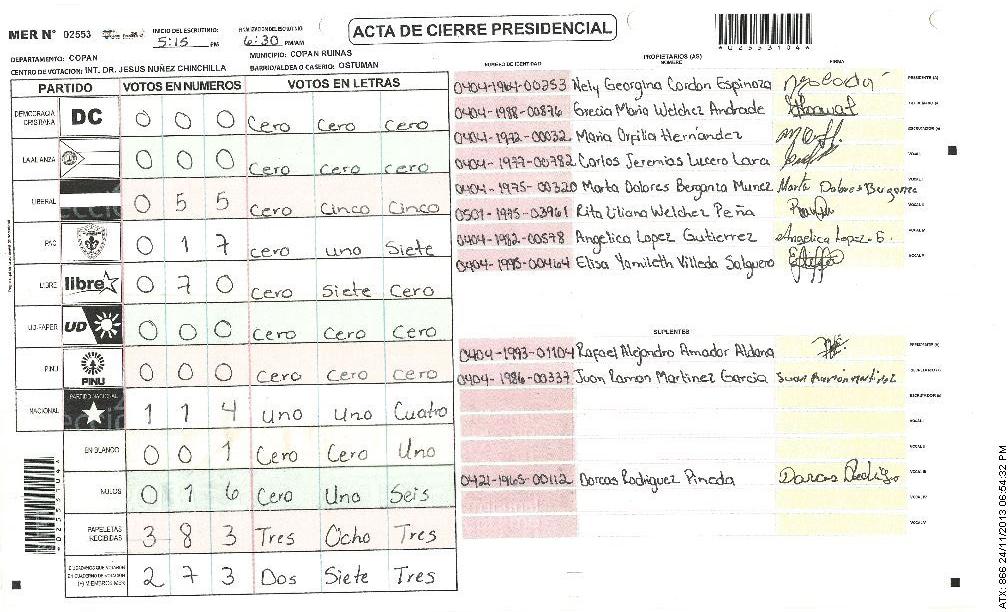 ACTA DE CIERRE PRESIDENCIAL
MER N° 02553
INICIO DEL ESCRUTINIO: 5:15 PM
6:30 PM/AM
DEPARTAMENTO: COPAN
MUNICIPIO: COPAN RUINAS
CENTRO DE VOTACION: INT. DR. JESUS NUÑEZ CHINCHILLA
BARRIO/ALDEA O CASERIO: OSTUMAN
PARTIDO VOTOS EN NUMEROS VOTOS EN LETRAS
DEMOCRACIA CRISTIANA DC 0 0 0 Cero Cero Cero
LA ALIANZA 0 0 0 Cero Cero Cero
LIBERAL 0 5 5 Cero Cinco Cinco
PAC 0 1 7 Cero uno Siete
LIBRE libre 0 7 0 Cero Siete Cero
UD-FAPER UD 0 0 0 Cero Cero Cero
PINU PINU 0 0 0 Cero Cero Cero
NACIONAL PARTIDO NACIONAL 1 1 4 uno Uno Cuatro
EN BLANCO 0 0 1 Cero Cero Uno
NULOS 0 1 6 Cero Uno Seis
PAPELETAS RECIBIDAS 3 8 3 Tres Ocho Tres
CIUDADANOS QUE VOTARON EN CUADERNO DE VOTACION (+) MIEMBROS MER 2 7 3 Dos Siete Tres
PROPIETARIOS (AS)
NUMERO DE IDENTIDAD NOMBRE FIRMA
0404-1964-00253 Nely Georgina Cordon Espinoza PRESIDENTE (A)
0404-1988-00876 Grecia Maria Welchez Andrade
0404-1972-00032 Maria Orfilia Hernández ESCRUTADOR (A)
0404-1977-00782 Carlos Jeremias Lucero Lara VOCAL I
0404-1975-00320 Marta Dolores Berganza Munez Marta Dolores Berganza
0501-1975-03961 Rita Liliana Welchez Peña
0404-1982-00578 Angelica Lopez Gutierrez Angelica Lopez G.
0404-1995-00464 Elisa Yamileth Villeda Salguero
SUPLENTES
0404-1993-01104 Rafael Alejandro Amador Aldana PRESIDENTE (A)
0404-1986-00337 Juan Ramon Martinez Garcia Juan Ramon Martinez
ESCRUTADOR (A)
VOCAL I
VOCAL II
0421-1965-00112 Dorcas Rodriguez Pineda VOCAL III
VOCAL IV
VOCAL V
ATX: 866 24/11/2013 06:54:32 PM